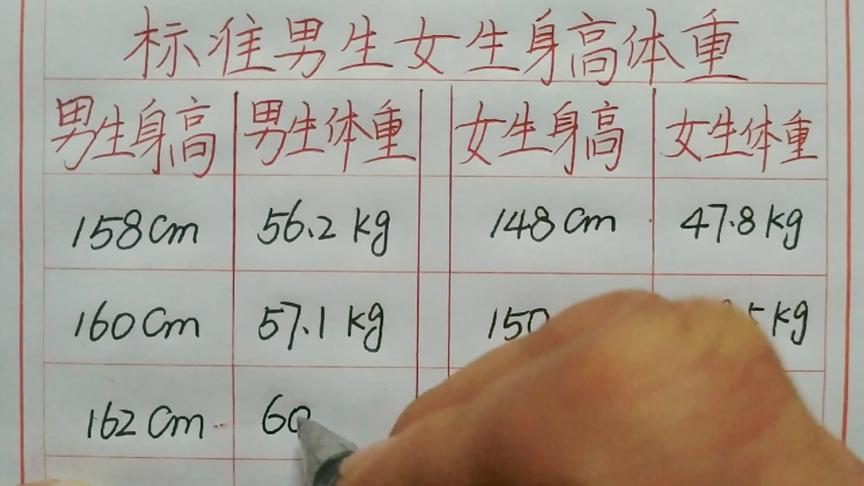 标准男生女生身高体重
男生身高 男生体重 女生身高 女生体重
158cm 56.2kg 148cm 47.8kg
160cm 57.1kg 150 5kg
162cm 60